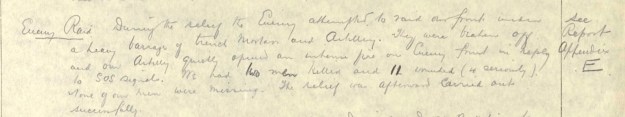 Enemy Raid During the relief the Enemy attempted to raid our front under see
a heavy barrage of trench Mortars and Artillery. They were beaten off Report
and our Artillery quickly opened an intense fire on Enemy front in reply Appendix
to SOS signals. We had two men killed and 11 wounded (10 seriously). E.
None of our men were missing. The relief was afterward carried out
successfully.